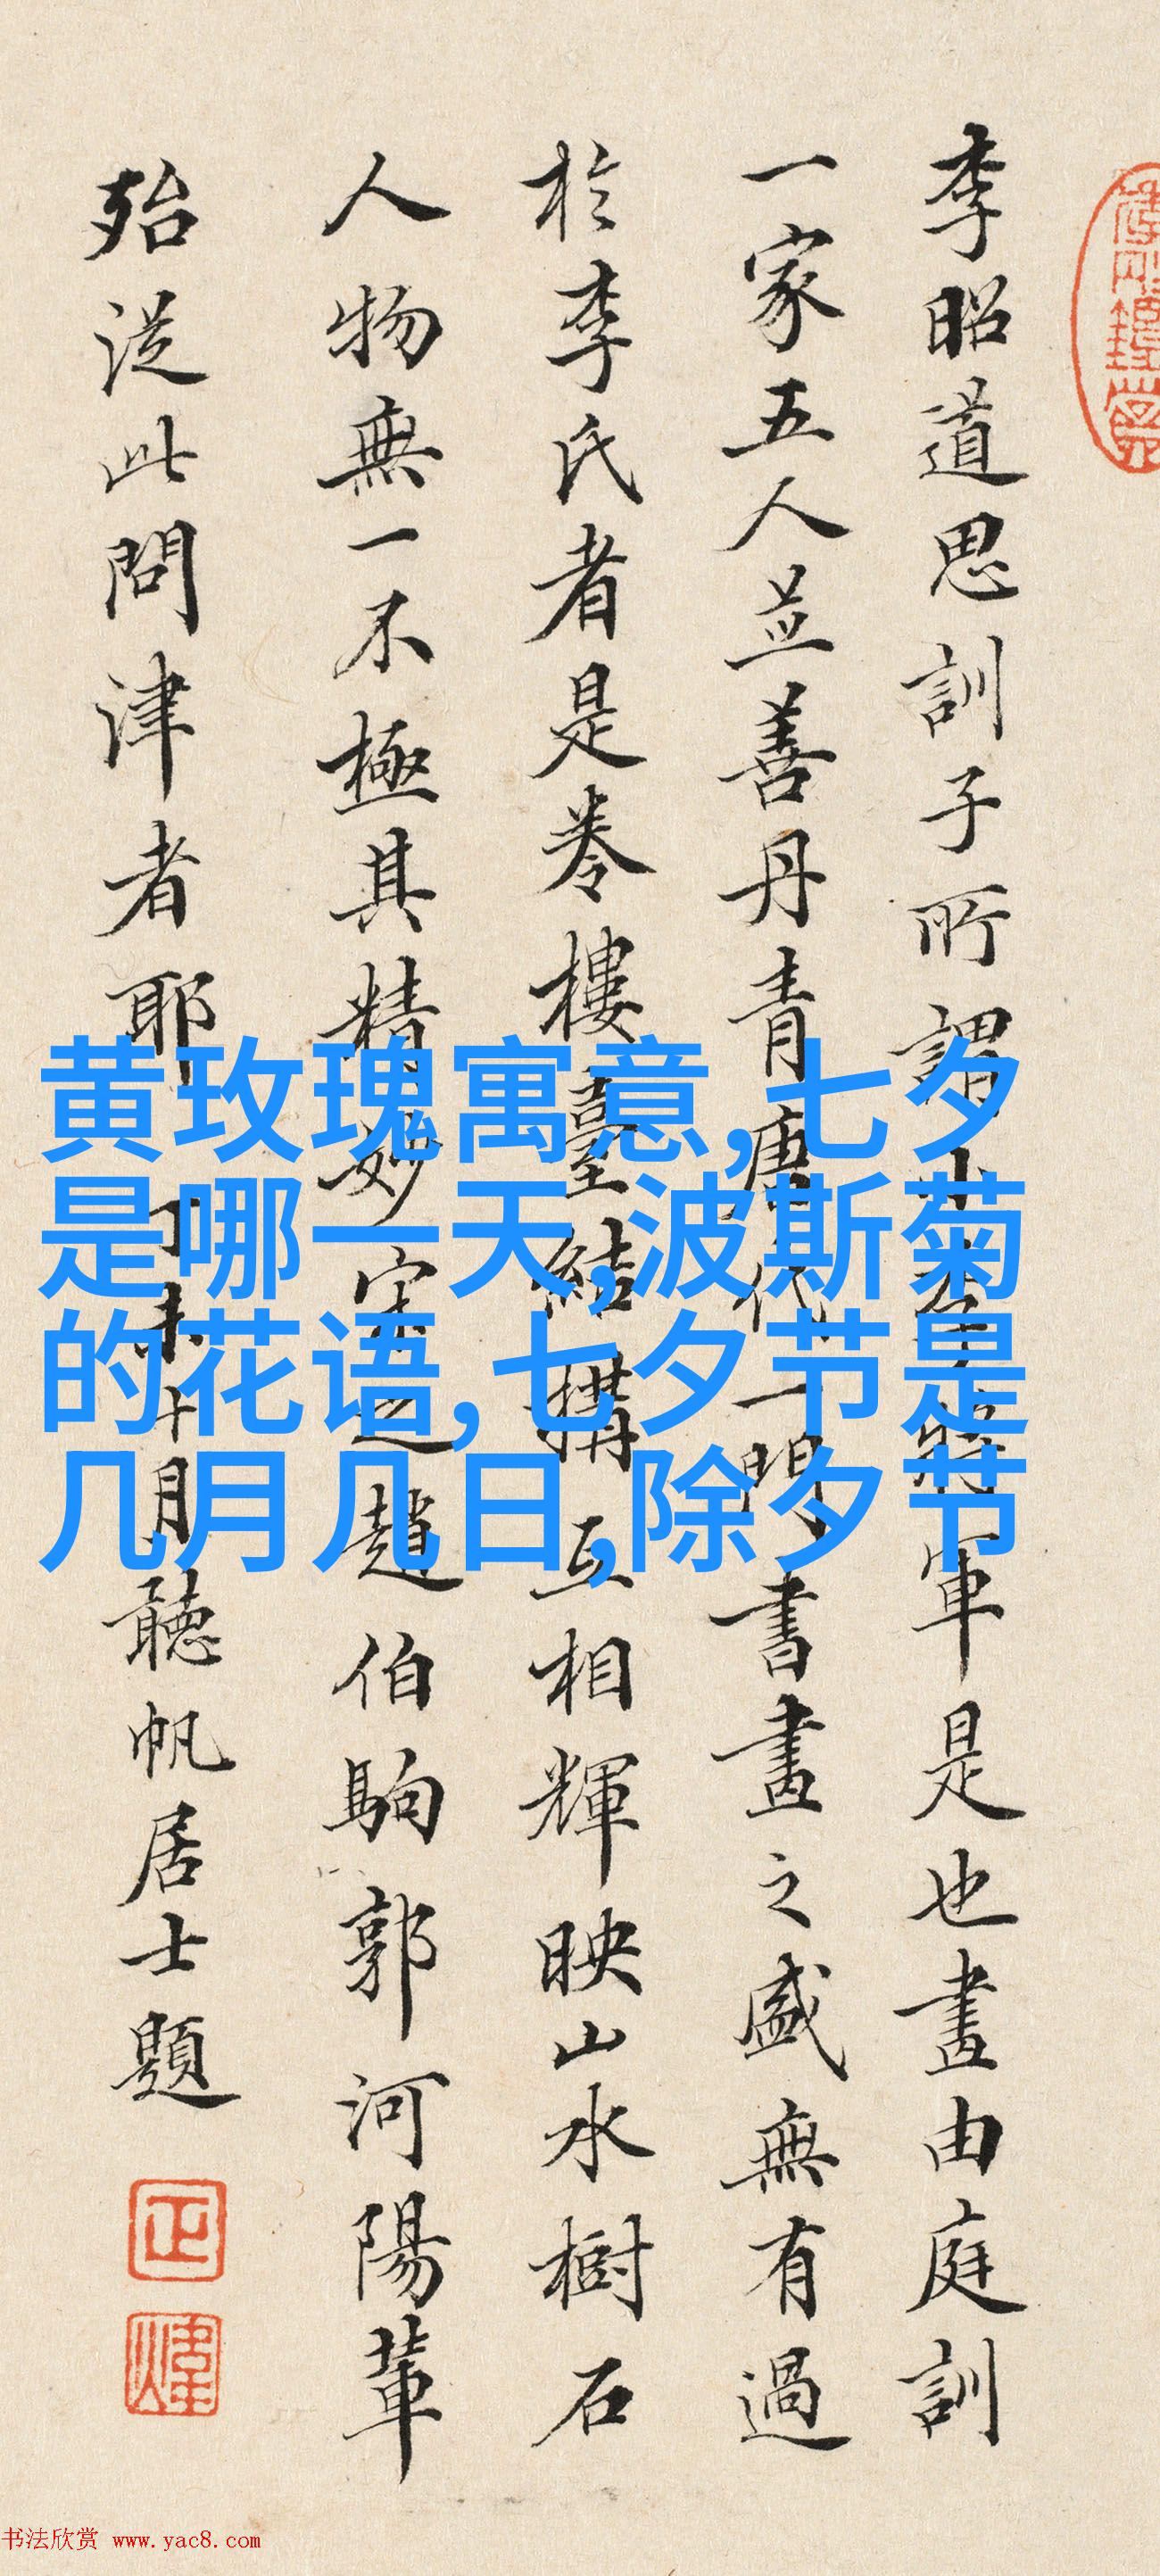 李昭道思訓子所謂小李將軍是也畫由庭訓
一家五人並善丹青唐代一門書畫之盛無有過
於李氏者是卷樓臺結構互相輝映山水樹石
人物無一不極其精妙宋之趙伯駒郭河陽輩
殆從此問津者耶丁未十月聽帆居士題
黄玫瑰寓意,七夕
是哪一天,波斯菊
的花语,七夕节是
几月几日,除夕节
书法欣赏 www.yac8.com